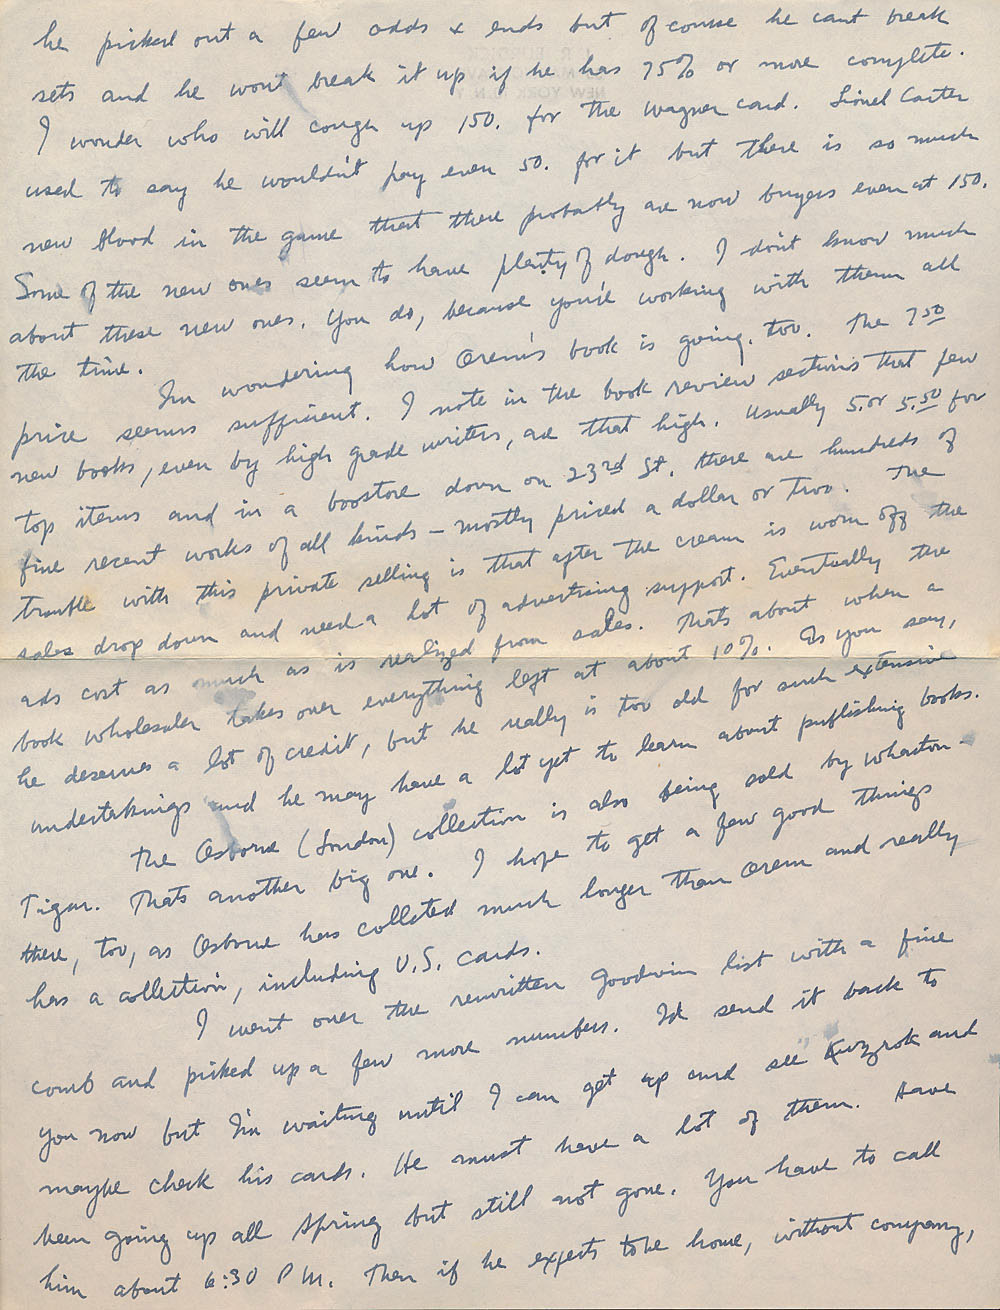 he picked out a few odds & ends but of course he cant break
sets and he wont break it up if he has 75% or more complete.
I wonder who will cough up 150. for the Wagner card. Lionel Carter
used to say he wouldn't pay even 50. for it but there is so much
new blood in the game that there probably are now buyers even at 150.
Some of the new ones seem to have plenty of dough. I don't know much
about these new ones. You do, because you're working with them all
the time.
I'm wondering how Orem's book is going, too. The 7 50
price seems sufficient. I note in the book review sections that few
new books, even by high grade writers, are that high. Usually 5. or 5.50 for
top items and in a boostore down on 23rd St. there are hundreds of
fine recent works of all kinds – mostly priced a dollar or two. The
trouble with this private selling is that after the cream is worn off the
sales drop down and need a lot of advertising support. Eventually the
ads cost as much as is realized from sales. Thats about when a
book wholesaler takes over everything left at about 10%. As you say,
he deserves a lot of credit, but he really is too old for such extensive
undertakings and he may have a lot yet to learn about publishing books.
The Osborne (London) collection is also being sold by Wharton-
Tigar. Thats another big one. I hope to get a few good things
there, too, as Osborne has colleted much longer than Orem and really
has a collection, including U.S. cards.
I went over the rewritten Goodwin list with a fine
comb and picked up a few more numbers. I'd send it back to
you now but I'm waiting until I can get up and see Kuzrok and
maybe check his cards. He must have a lot of them. Have
been going up all Spring but still not gone. You have to call
him about 6:30 P M. Then if he expects to be home, without company,